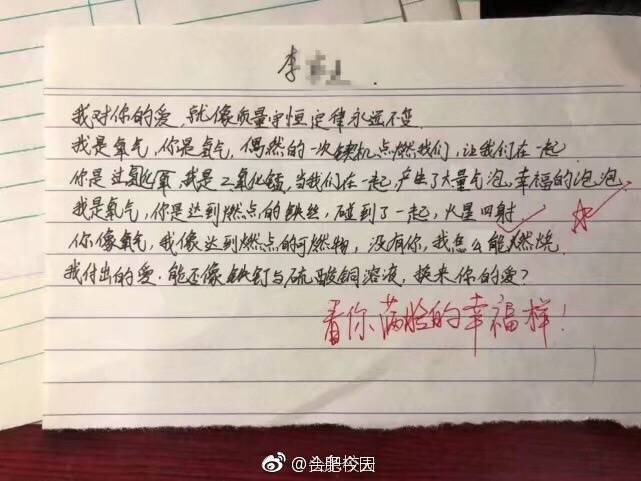 李
我对你的爱,就像质量守恒定律永远不变.
我是氧气,你是氢气,偶然的一次契机点燃我们,让我们在一起.
你是过氧化氢,我是二氧化锰,当我们在一起,产生了大量气泡,幸福的泡泡
我是氧气,你是达到燃点的铁丝,碰到了一起,火星四射
你像氧气,我像达到燃点的可燃物,没有你,我怎么能燃烧.
我付出的爱.能否像铁钉与硫酸铜溶液,换来你的爱?
看你满脸的幸福样!
@合肥校园